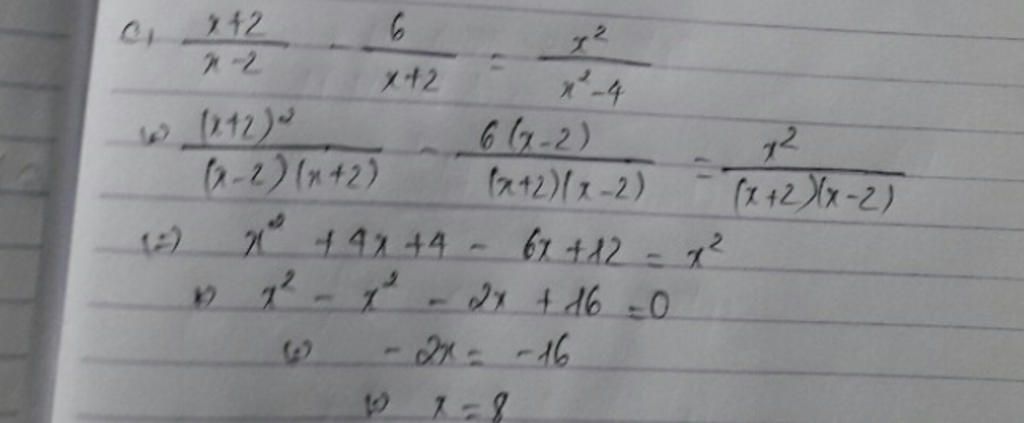 c, (x+2)/(x-2) - 6/(x+2) = x²/(x²-4)
(=) (x+2)²/((x-2)(x+2)) - 6(x-2)/((x+2)(x-2)) = x²/((x+2)(x-2))
(=) x² + 4x + 4 - 6x + 12 = x²
(=) x² - x² - 2x + 16 = 0
(=) - 2x = -16
(=) x = 8